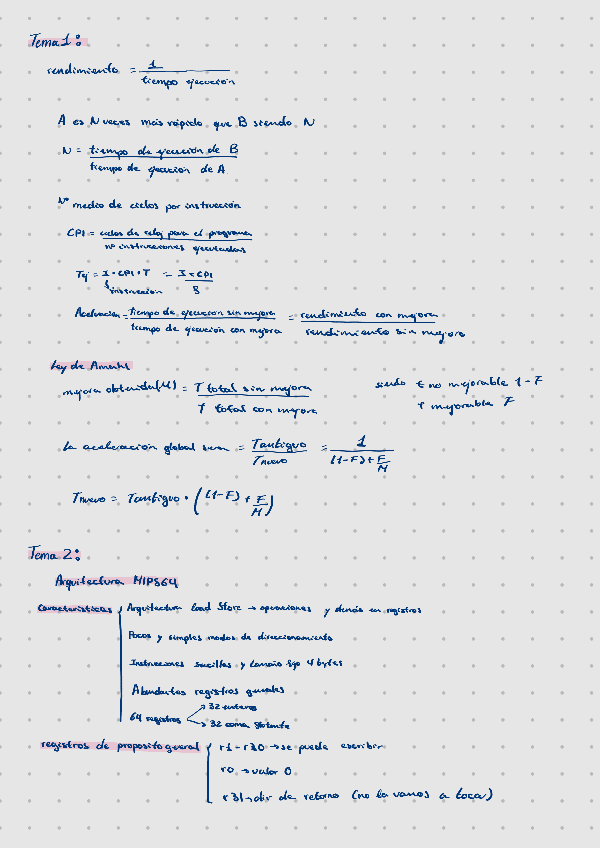 Tema 1:
rendimiento = 1 / tiempo ejecución
A es N veces más rápido que B siendo N
N = tiempo de ejecución de B / tiempo de ejecución de A
Nº medio de ciclos por instrucción
CPI = ciclos de reloj para el programa / nº instrucciones ejecutadas
Tej = I · CPI · T = I · CPI / f
instrucción
Aceleración = tiempo de ejecución sin mejora / tiempo de ejecución con mejora = rendimiento con mejora / rendimiento sin mejora
Ley de Amdahl
mejora obtenida(M) = T total sin mejora / T total con mejora siendo t no mejorable 1-F
t mejorable F
La aceleración global sera = Tantiguo / Tnuevo = 1 / (1-F) + F/M
Tnuevo = Tantiguo · ((1-F) + F/M)
Tema 2:
Arquitectura MIPS64
características Arquitectura Load Store → operaciones y demás en registros
Pocos y simples modos de direccionamiento
Instrucciones sencillas y tamaño fijo 4 bytes
Abundantes registros generales
64 registros → 32 enteros
→ 32 coma flotante
registros de proposito general r1 - r30 → se puede escribir
r0 → valor 0
r31 → dir de retorno (no la vamos a tocar)